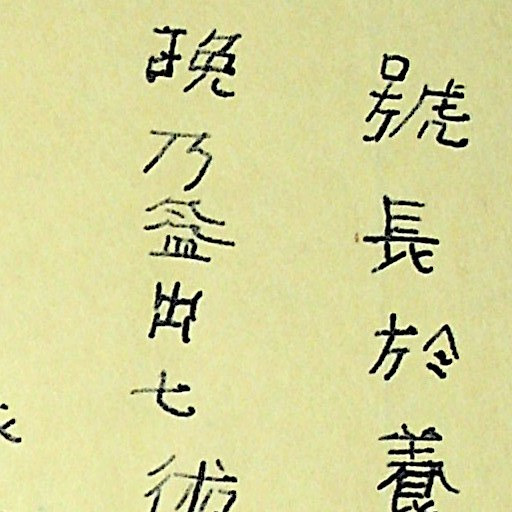 號長於養
晚乃益出七術